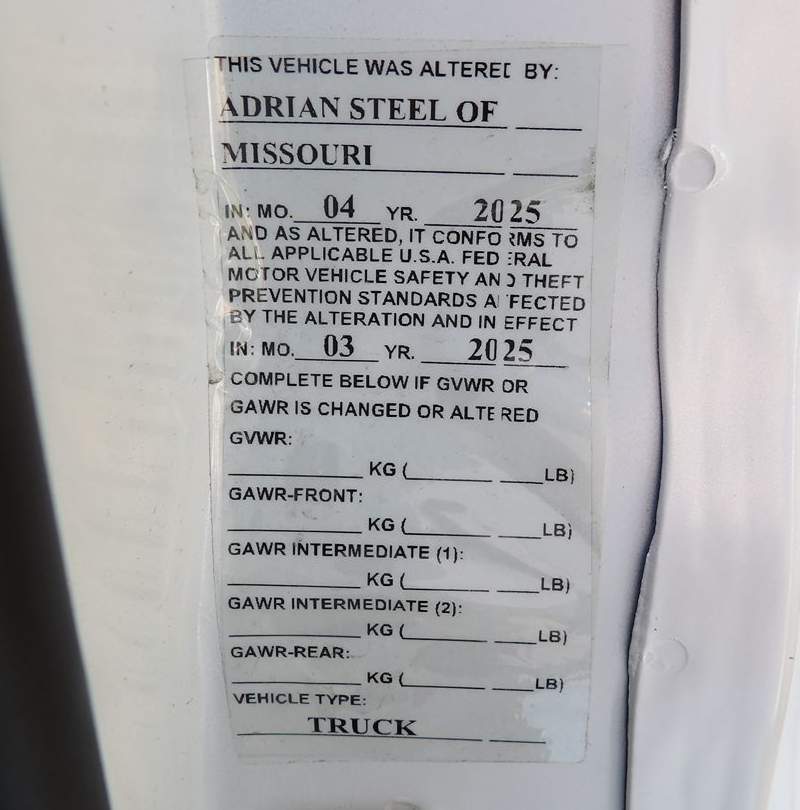 THIS VEHICLE WAS ALTERED BY:
ADRIAN STEEL OF
MISSOURI
IN: MO. 04 YR. 2025
AND AS ALTERED, IT CONFORMS TO
ALL APPLICABLE U.S.A. FEDERAL
MOTOR VEHICLE SAFETY AND THEFT
PREVENTION STANDARDS AFFECTED
BY THE ALTERATION AND IN EFFECT
IN: MO. 03 YR. 2025
COMPLETE BELOW IF GVWR OR
GAWR IS CHANGED OR ALTERED
GVWR:
KG ( LB)
GAWR-FRONT:
KG ( LB)
GAWR INTERMEDIATE (1):
KG ( LB)
GAWR INTERMEDIATE (2):
KG ( LB)
GAWR-REAR:
KG ( LB)
VEHICLE TYPE:
TRUCK